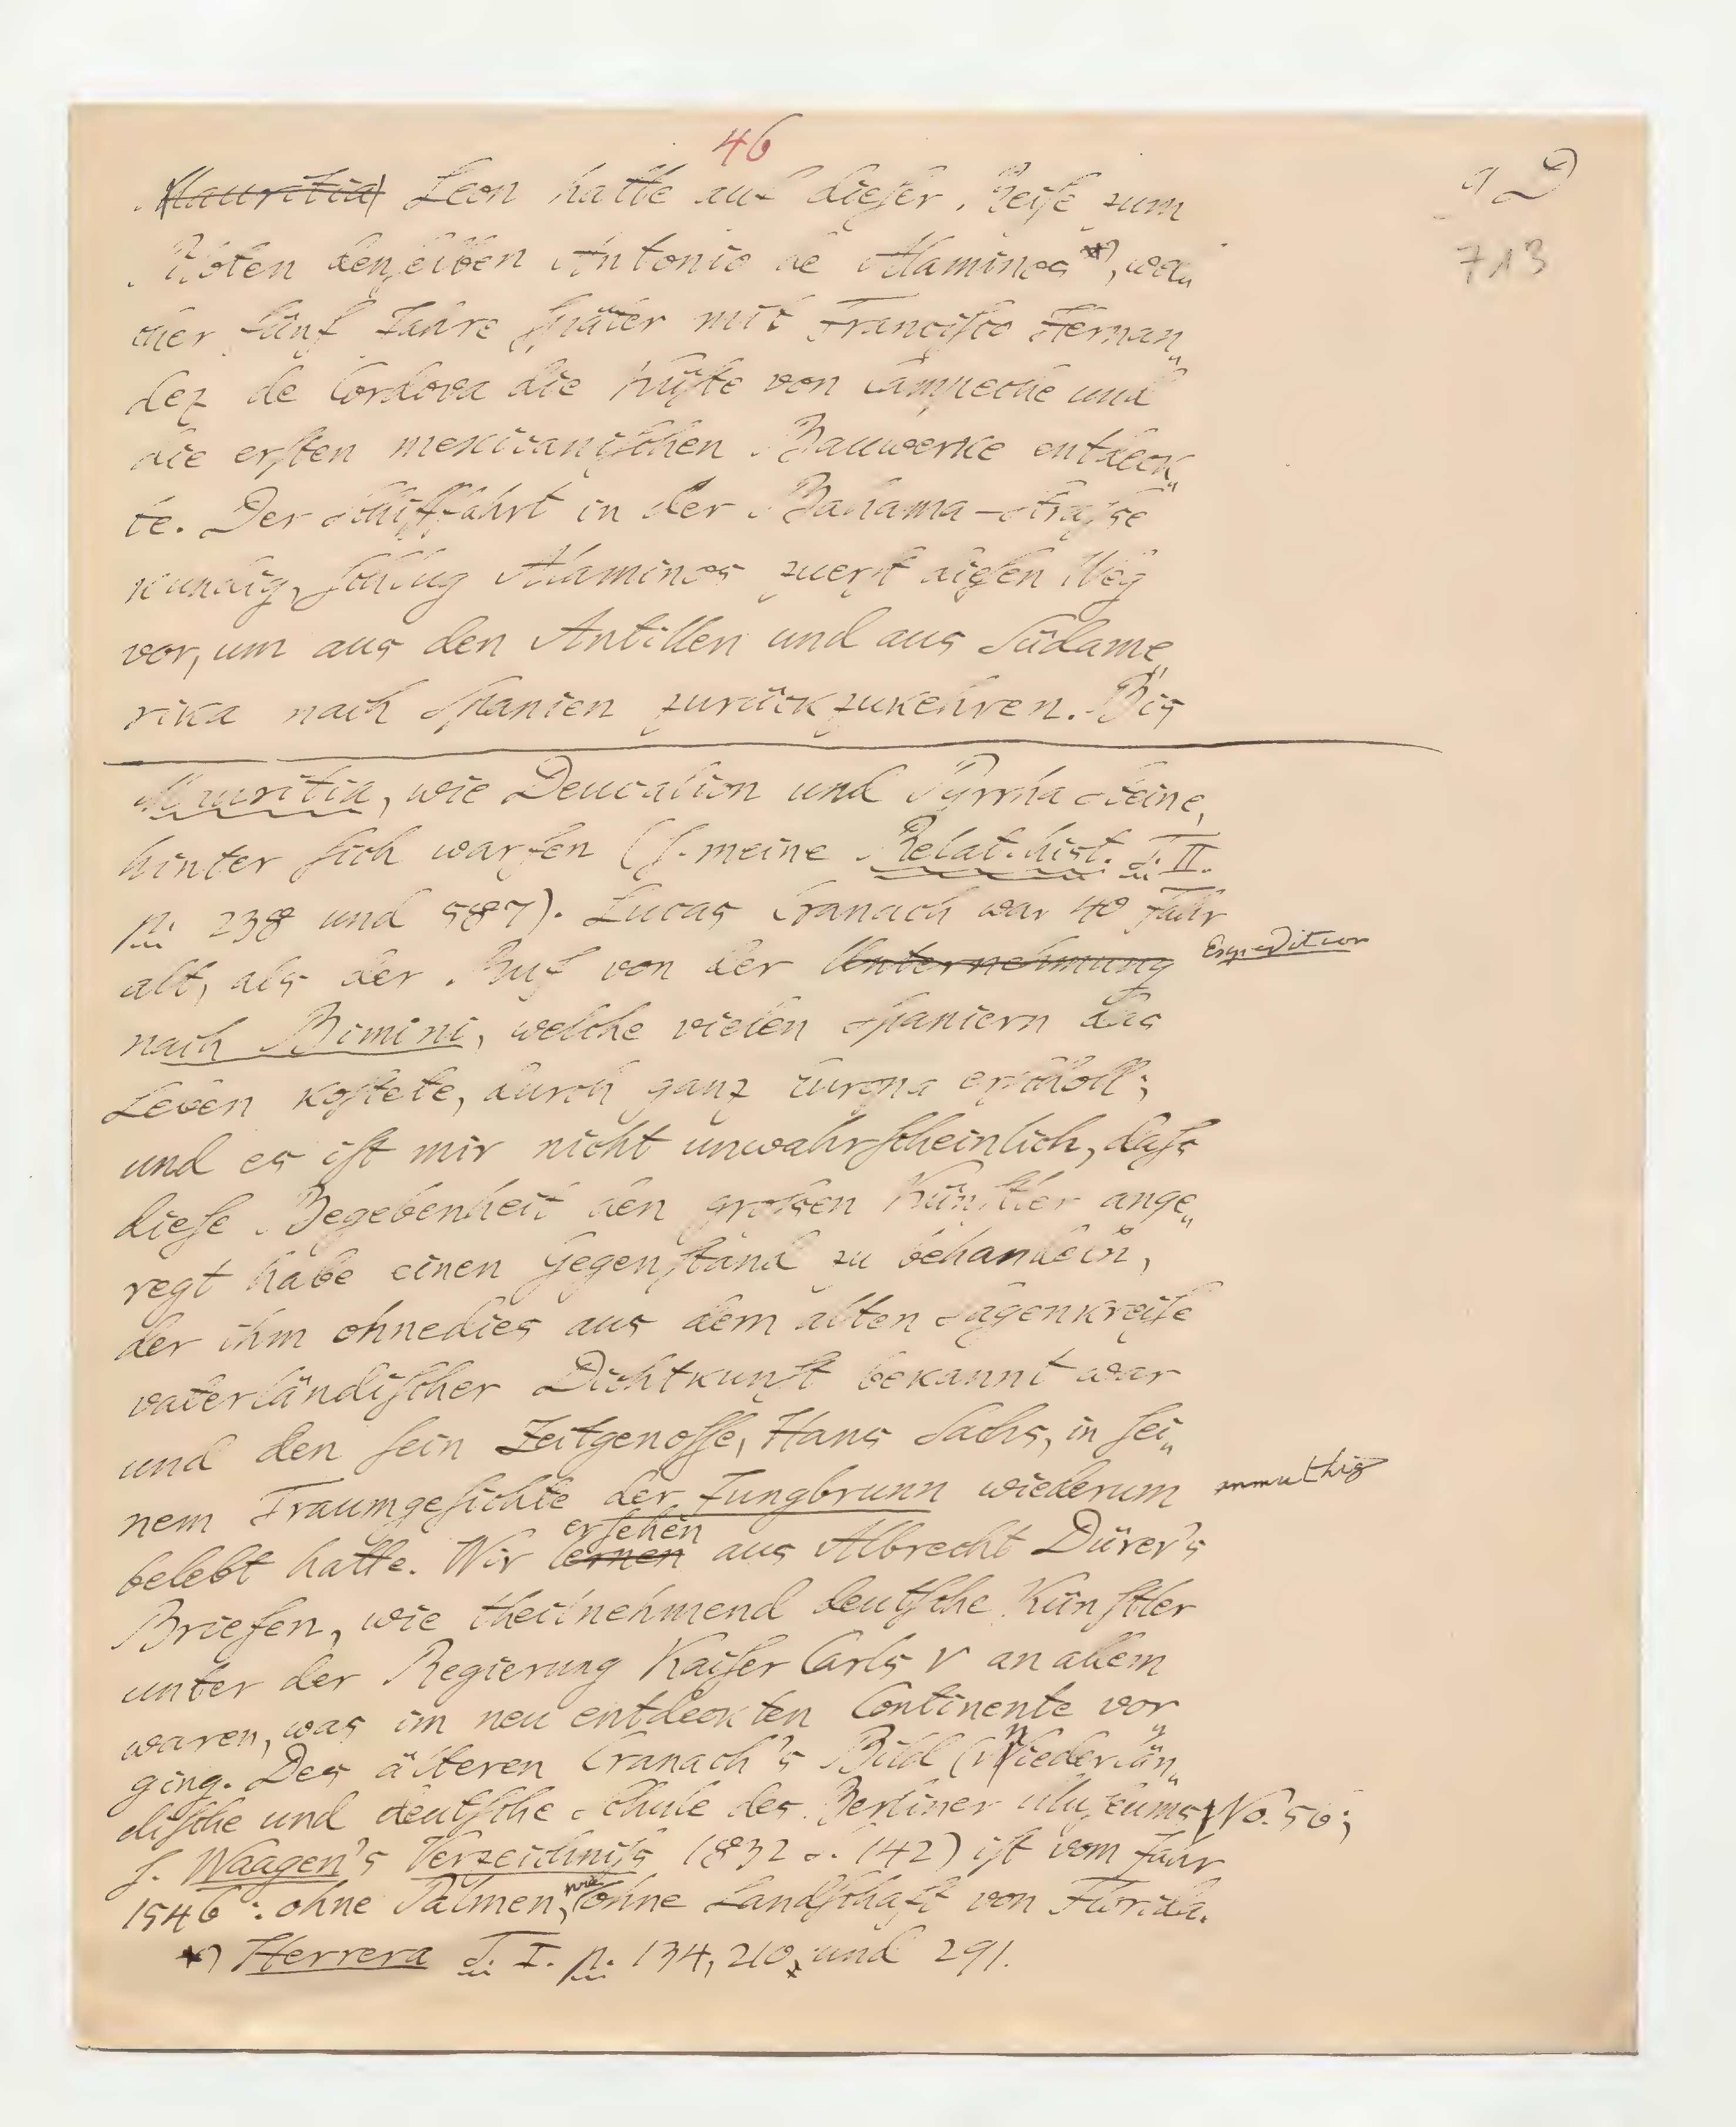 46
a D
713
Mauritia Leon hatte auf dieſer Reiſe zum
Piloten denſelben Antonio de Alaminos *), wel„
cher fünf Jahre ſpäter mit Franciſco Hernan„
dez de Cordova die Küſte von Campeche und
die erſten mexicaniſchen Bauwerke entdeck„
te. Der Schifffahrt in der Bahama-Straſse
kundig, ſchlug Alaminos zuerſt dieſen Weg
vor, um aus den Antillen und aus Südame„
rika nach Spanien zurückzukehren. Bis
Mauritia, wie Deucalion und Pyrrha Steine,
hinter ſich warfen (ſ. meine Relat. hist. T. II.
p. 238 und 587). Lucas Cranach war 40 Jahr
alt, als der Ruf von der Unternehmung Expedition
nach Bimini, welche vielen Spaniern das
Leben koſtete, durch ganz Europa erſcholl;
und es iſt mir nicht unwahrſcheinlich, daſs
dieſe Begebenheit den groſsen Künſtler ange„
regt habe einen Gegenſtand zu behandeln,
der ihm ohnedies aus dem alten Sagenkreiſe
vaterländiſcher Dichtkunſt bekannt war
und den ſein Zeitgenoſſe, Hans Sachs, in ſei„
nem Traumgeſichte der Jungbrunn wiederum anmuthig
erſehen
belebt hatte. Wir lernen aus Albrecht Dürer's
Briefen, wie theilnehmend deutſche Künſtler
unter der Regierung Kaiſer Carls V an allem
waren, was im neu entdeckten Continente vor„
ging. Des älteren Cranach's Bild (Niederlän„
diſche und deutſche Schule des Berliner Muſeums, No. 56;
ſ. Waagen's Verzeichniſs 1832 S. 142) iſt vom Jahr
1546: ohne Palmen, wie ohne Landſchaft von Florida.
*) Herrera T. I. p. 134, 210, und 291.